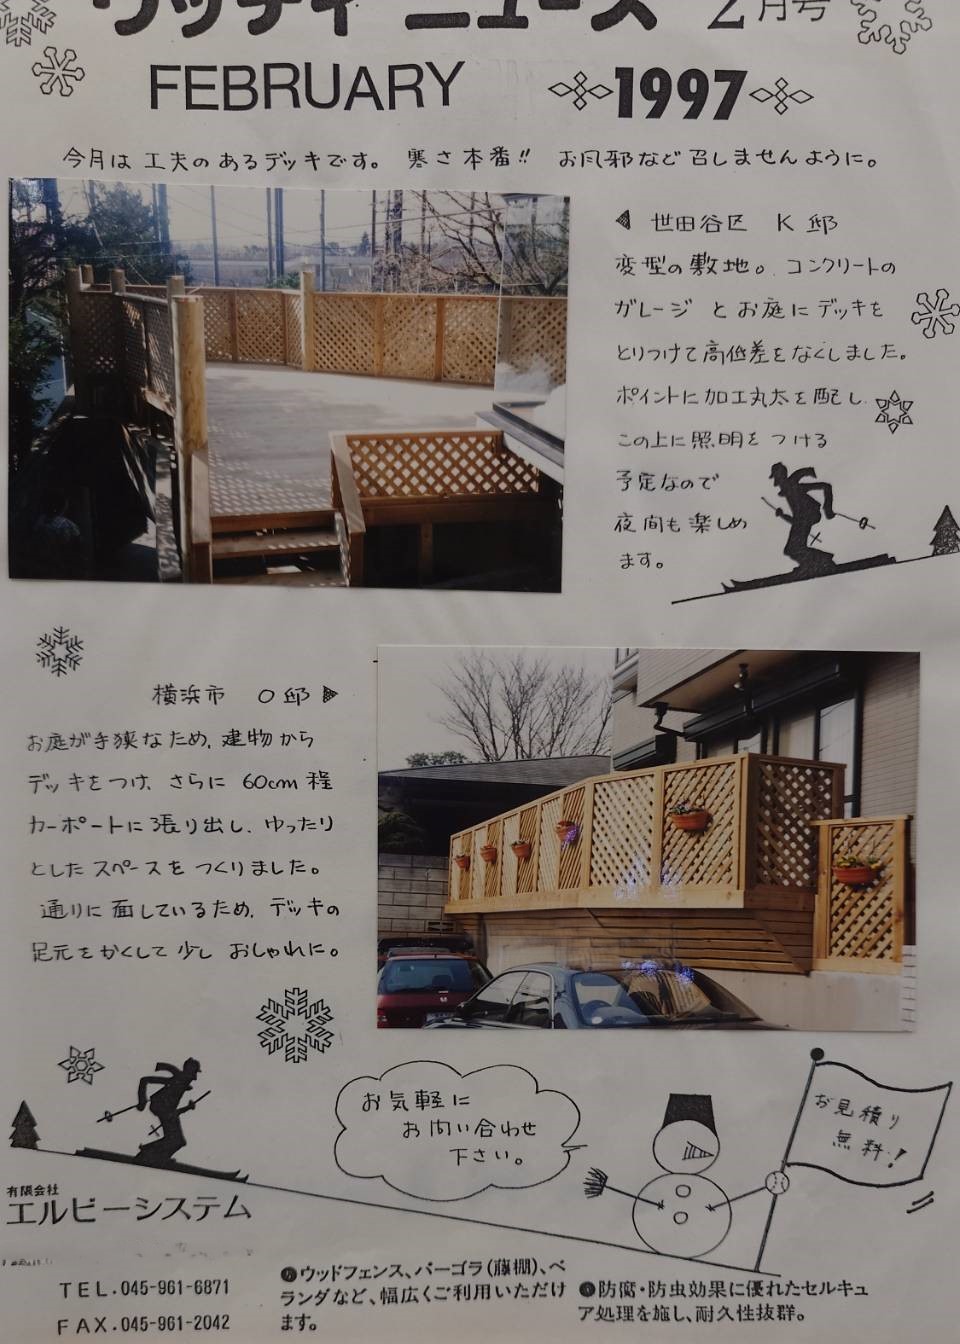 ウッディ ニュース 2月号
FEBRUARY 1997
今月は工夫のあるデッキです。 寒さ本番!! お風邪など召しませんように。
世田谷区 K邸
変型の敷地。コンクリートの
ガレージ とお庭にデッキを
とりつけて高低差をなくしました。
ポイントに加工丸太を配し
この上に照明をつける
予定なので
夜間も楽しめ
ます。
横浜市 O邸
お庭が手狭なため、建物から
デッキをつけ、さらに 60cm 程
カーポートに張り出し、ゆったり
としたスペースをつくりました。
通りに面しているため、デッキの
足元をかくして少し おしゃれに。
お気軽に
お問い合わせ
下さい。
お見積り
無料!
有限会社
エルビーシステム
TEL.045-961-6871
FAX.045-961-2042
ウッドフェンス、パーゴラ(藤棚)、ベ
ランダなど、幅広くご利用いただけ
ます。
防腐・防虫効果に優れたセルキュ
ア処理を施し、耐久性抜群。